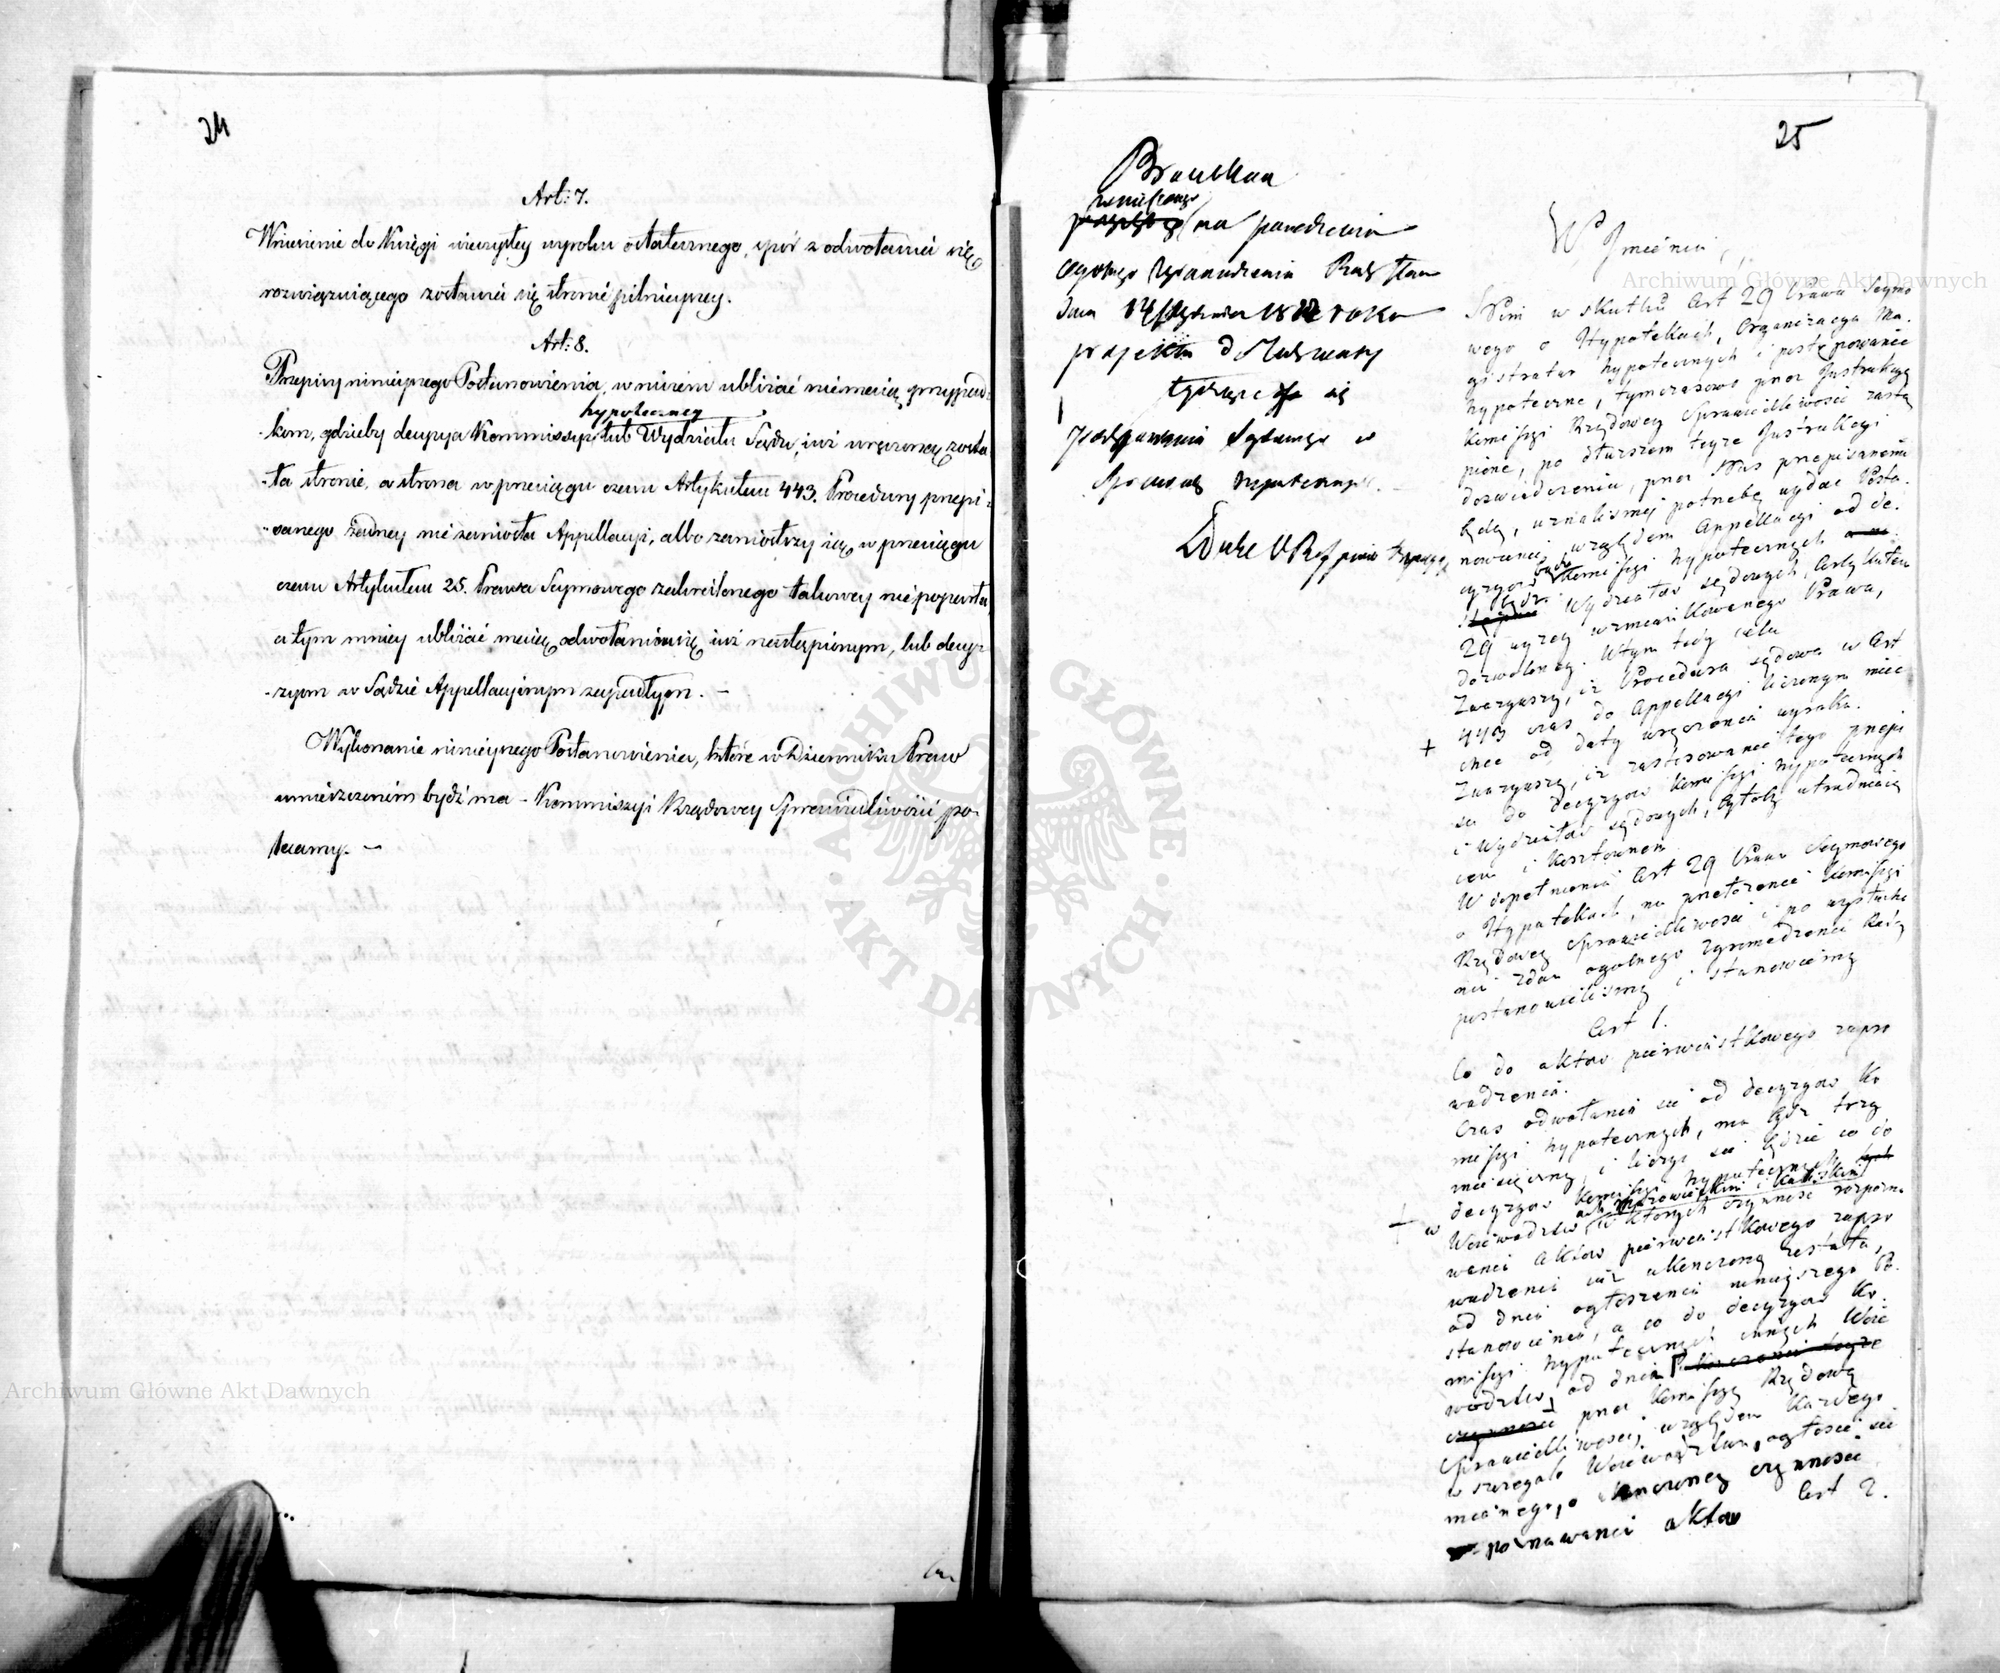 24
Art: 7.
Wniesienie do Księgi wieczystey wyroku ostatecznego, spór z odwołania się
rozwiązuiącego zostawia się stronie pilnieyszey.
Art: 8.
Przepisy ninieyszego Postanowienia, w niczem ubliżać niemaią przypad-
hypoteczney
-kom, gdzieby decyzya Kommissyi lub Wydziału Sądu, iuż wręczoney zosta-
-ła stronie, a strona w przeciągu czasu Artykułem 443. Procedury przepi-
-sanego żadney nie zaniosła Appellacyi, albo zaniosłszy ią, w przeciągu
czasu Artykułem 25. Prawa Seymowego zakreślonego takowey nie poparła,
a tym mniey ubliżać maią, odwołaniom się iuż nastąpionym, lub decy-
-zyom w Sądzie Appellacyinym zapadłym. —
Wykonanie ninieyszego Postanowienia, które w Dzienniku Praw
umieszczonem bydź ma - Kommissyi Rządowey Sprawiedliwości po-
lecamy. —
25
Bruillon
wniesionego
na posiedzenie
ogólnego Zgromadzenia Rady Stanu
dnia 14 1822 roku
projektu do
tyczące się
postępowania Sądowego w
Sprawach hypotecznych. —
W Imieniu
w skutku Art 29 Prawa Seymo
wego o Hypotekach, Organizacya Ma-
gistratur hypotecznych i postępowanie
hypoteczne, tymczasowo przez Instrukcyą
Komissyi Rządowey Sprawiedliwości zastą
pione, po dłuższem teyże Instrukcyi
doświadczeniu, przez Nas przepisanemi
będą, uznaliśmy potrzebę wydać Posta-
nowienie, względem Appellacyi od de-
cyzyow Komissyi hypotecznych
Wydziałow sądowych, Artykułem
29 wyżey wzmiankowanego Prawa,
dozwoloney. W tym tedy celu
Zważywszy, iż Procedura sądowa w Art
443 czas do Appellacyi liczonym mieć
chce od daty wręczenia wyroku.
+
Zważywszy, iż zastosowanie tego przepi
su do decyzyow Komissyi hypotecznych
i Wydziałow sądowych, byłoby utrudniaią
cem i kosztownem
W dopełnieniu Art 29 Prawa Seymowego
o Hypotekach, na przełożenie Komissyi
Rządowey Sprawiedliwości i po wysłucha
niu zdań ogolnego Zgromadzenia Rady
postanowiliśmy i stanowiemy
Art 1.
Co do aktow pierwiastkowego zapro
wadzenia.
Czas odwołania sie od decyzyow Ko
missyi hypotecznych, ma bydź trzy
miesięczny, i liczy sie będzie co do
decyzyow Komissyi hypotecznych
Mazowieckim i Kaliskim
+ w Woiewodztw w ktorych czynność rozpozna
wania Aktow pierwiastkowego zapro
wadzenia iuż ukończoną została,
od dnia ogłoszenia ninieyszego Po-
stanowienia, a co do decyzyow Ko-
missyi hypotecznych innych Woie
wodztw, od dnia
przez Komissyą Rządową
Sprawiedliwości, względem każdego
w szczegole Woiewodztwa, ogłosić sie
maiącego, o ukończoney czynności
poznawania aktow Art 2.
Archiwum Główne Akt Dawnych
Archiwum Główne Akt Dawnych
ARCHIWUM GŁÓWNE • AKT DAWNYCH •